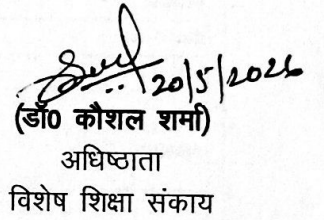 20/5/2026
(डॉ0 कौशल शर्मा)
अधिष्ठाता
विशेष शिक्षा संकाय